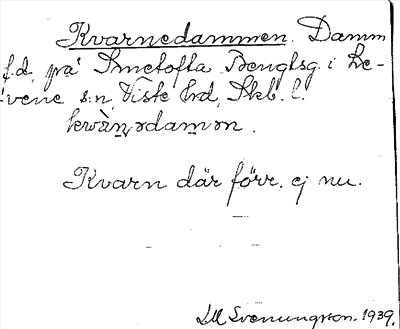 Kvarnedammen. Damm
f.d. på Smetofta Bengtsg. i Le-
vene s:n, Viste hrd, Skb. l.
kwàṇədamən.
Kvarn där förr, ej nu.
LM Svenungsson. 1939.